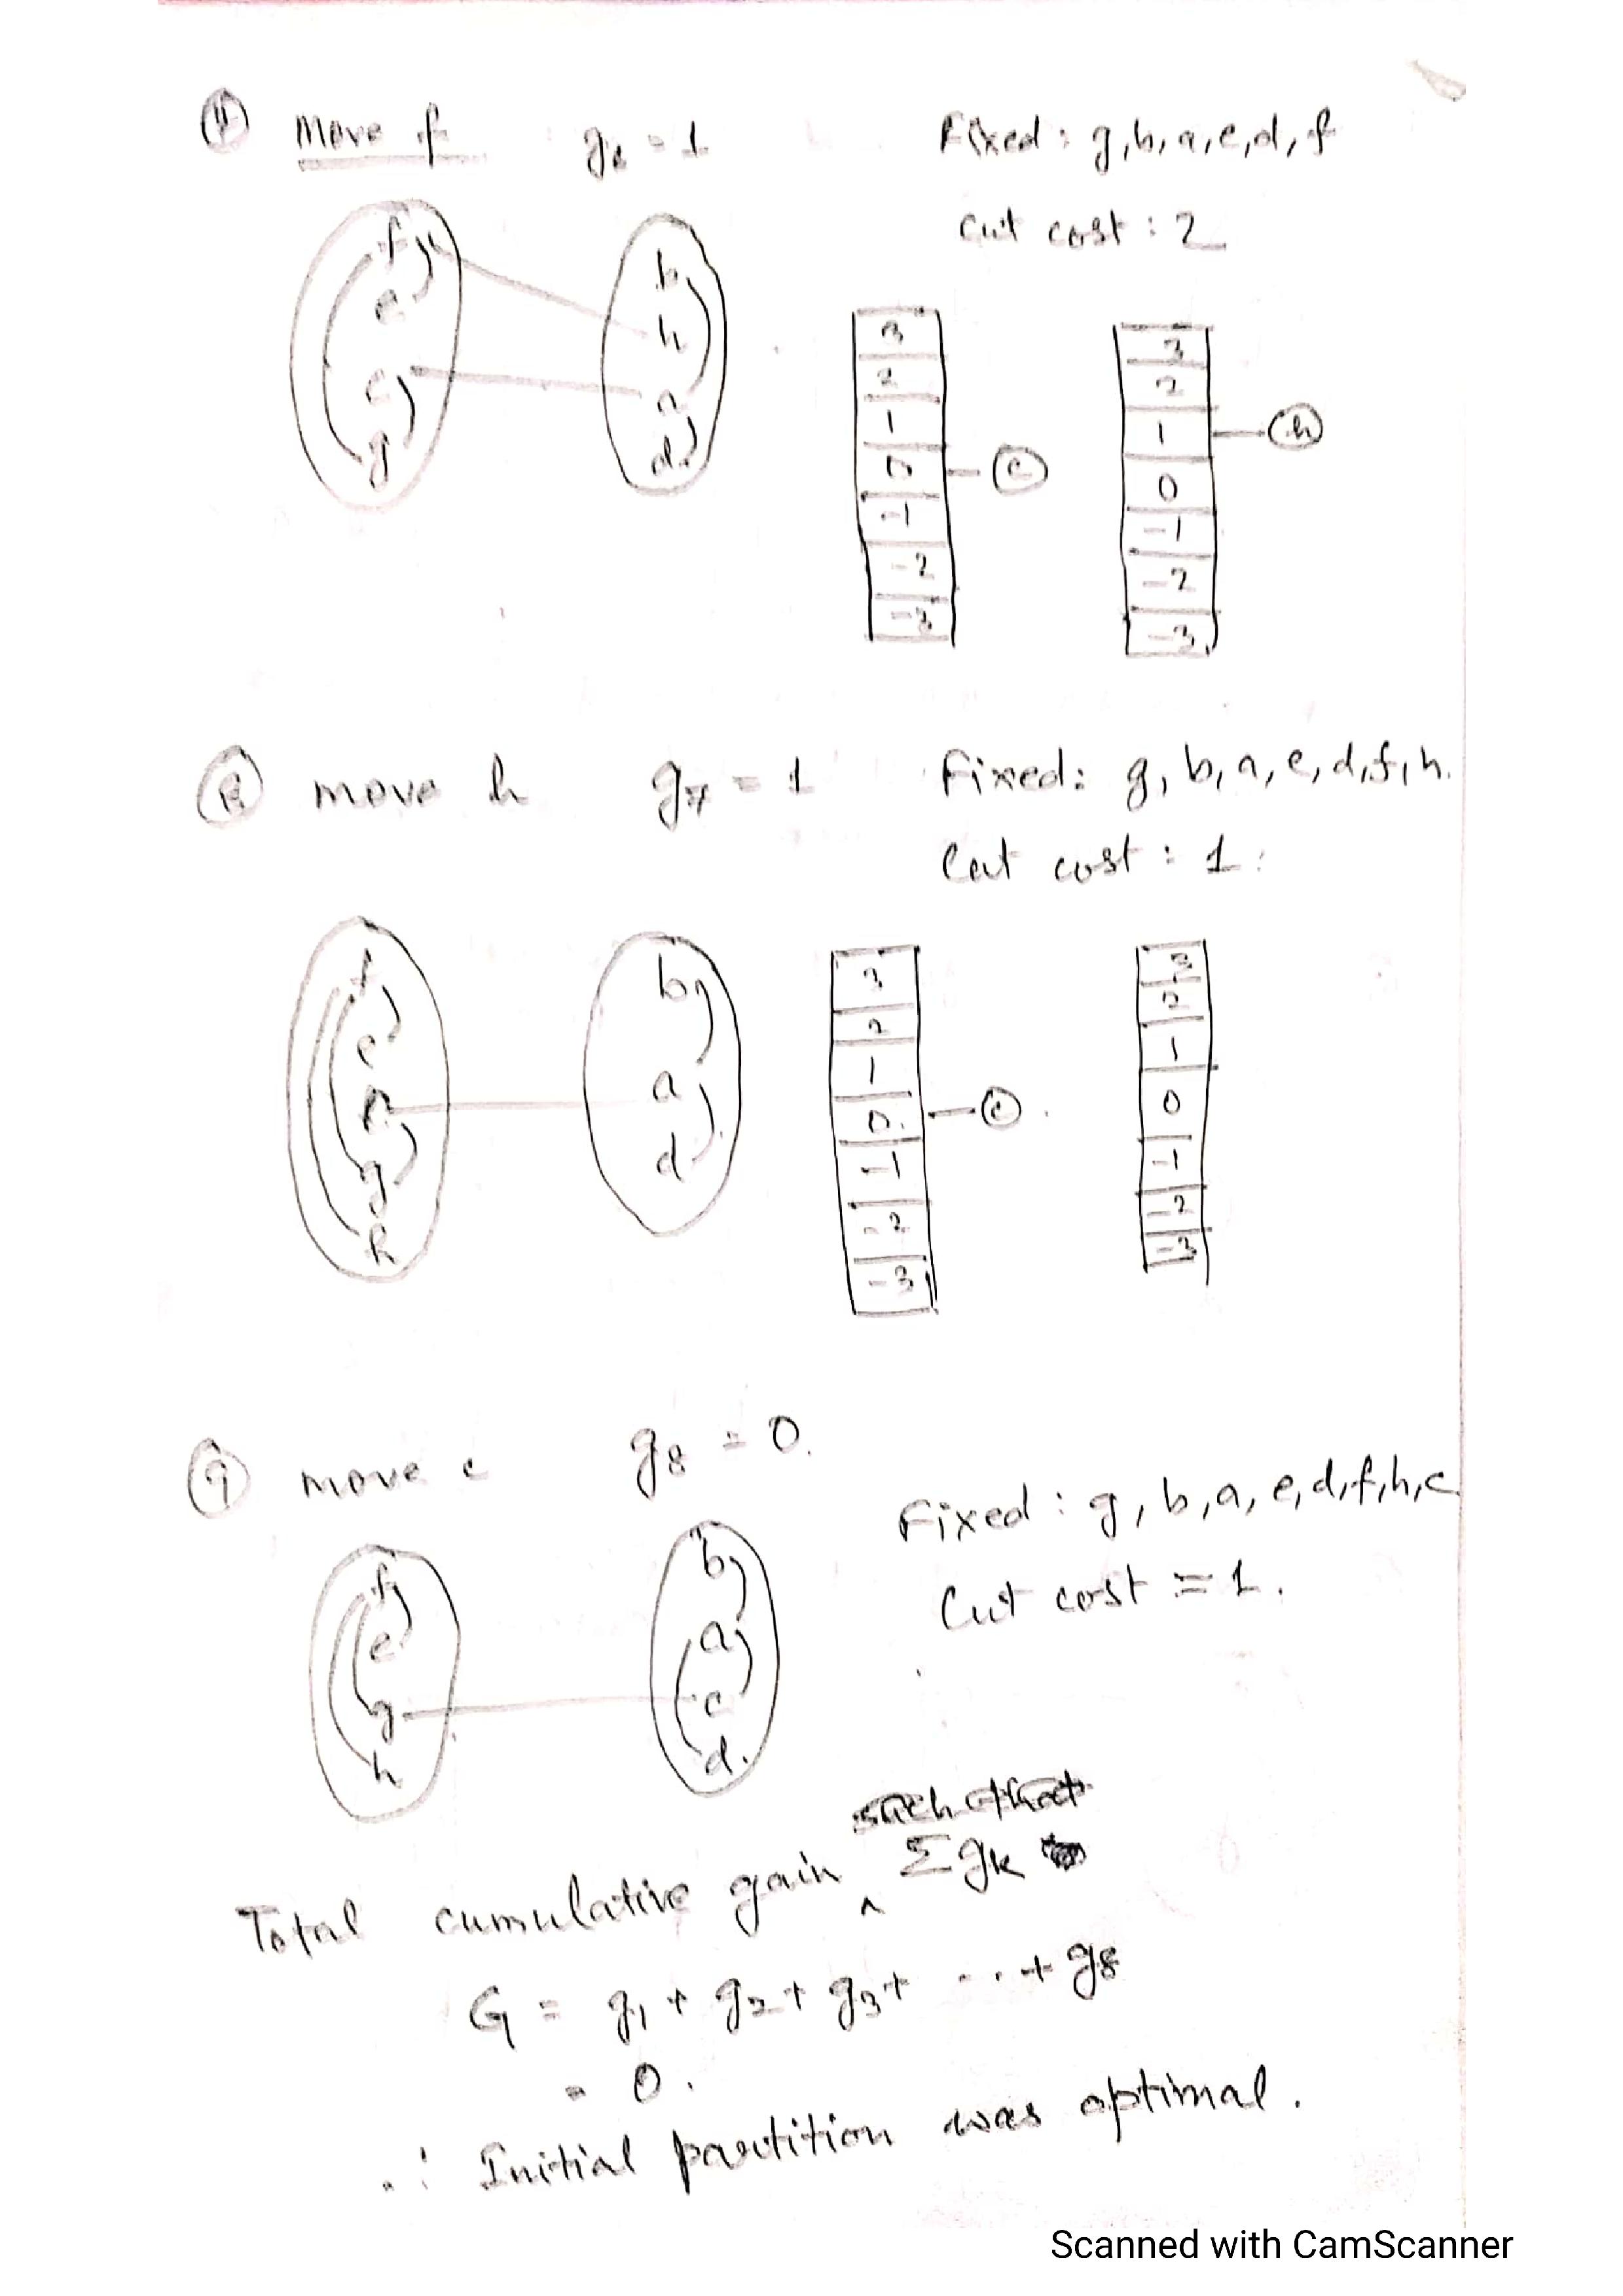 move f g6 = 1 Fixed: g, b, a, e, d, f
cut cost: 2
f
e
c
g
b
h
a
d
3
2
1
0
-1
-2
-3
c
3
2
1
0
-1
-2
-3
h
move h g7 = 1 Fixed: g, b, a, e, d, f, h.
Cut cost: 1.
f
e
c
g
h
b
a
d
3
2
1
0
-1
-2
-3
c
3
2
1
0
-1
-2
-3
9 move c g8 = 0.
Fixed: g, b, a, e, d, f, h, c
Cut cost = 1.
f
e
g
h
b
a
c
d.
such that
Total cumulative gain ^ Σgk
G = g1 + g2 + g3 + ... + g8
= 0.
∴ Initial partition was optimal.
Scanned with CamScanner